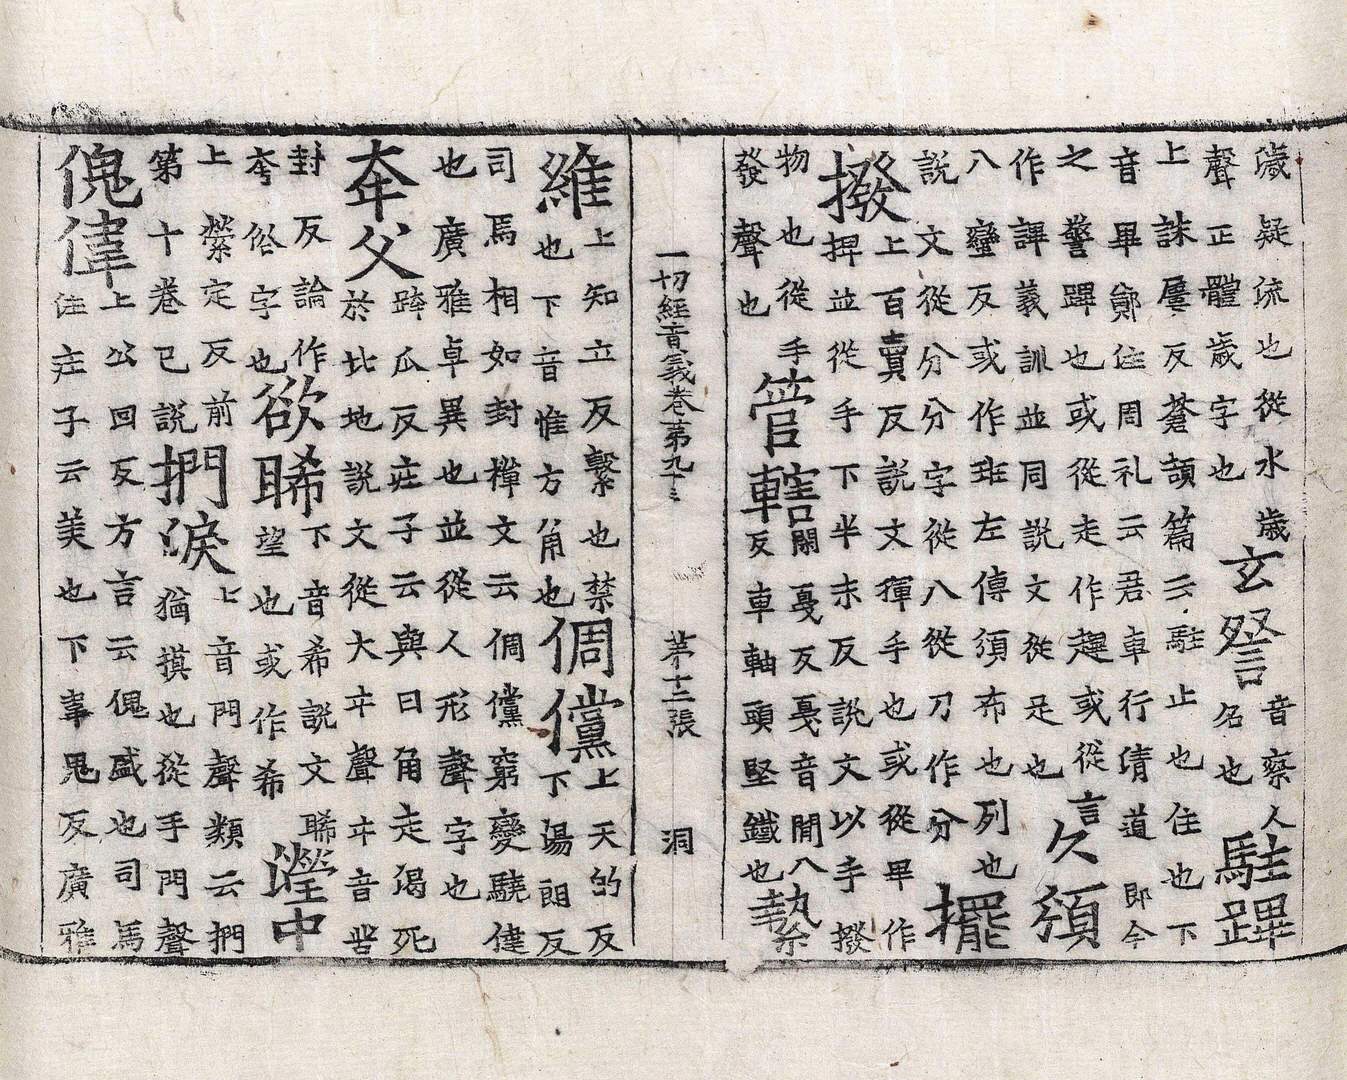 濊疑流也從水歲
聲正體歲字也
玄詧
音察人
名也
駐蹕
上誅屢反蒼頡篇云駐止也住也下
音畢鄭住周礼云君車行清道即今
之警蹕也或從走作趩或從言
作謘義訓並同說文從足也
久頒
八蠻反或作班左傳須布也列也
說文從分分字從八從刀作分
擺
撥
上百賣反說文揮手也或從畢作
捭並從手下半末反說文以手撥
物也從手
發聲也
管轄
關戞反戞音閒八
反車軸頭堅鐵也
縶
一切經音義卷第九十三
第十二張
洞
維
上知立反繫也禁
也下音惟方角也
倜儻
上天的反
下湯朗反
司馬相如封禪文云倜儻窮變驍偉
也廣雅卓異也並從人形聲字也
夲父
跨瓜反莊子云與日角走渴死
於北地說文從大㐄聲㐄音苦
封反論作
夸俗字也
欲睎
下音希說文睎
望也或作希
瀅中
上縈定反前
第十卷已說
捫淚
上音門聲類云捫
猶摸也從手門聲
傀偉
上公回反方言云傀盛也司馬
住莊子云美也下韋鬼反廣雅